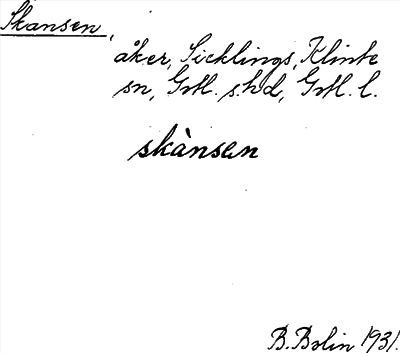 Skansen,
åker, Sicklings, Klinte
sn, Gotl. s. hd, Gotl. l.
skànsen
B. Bolin 1931.